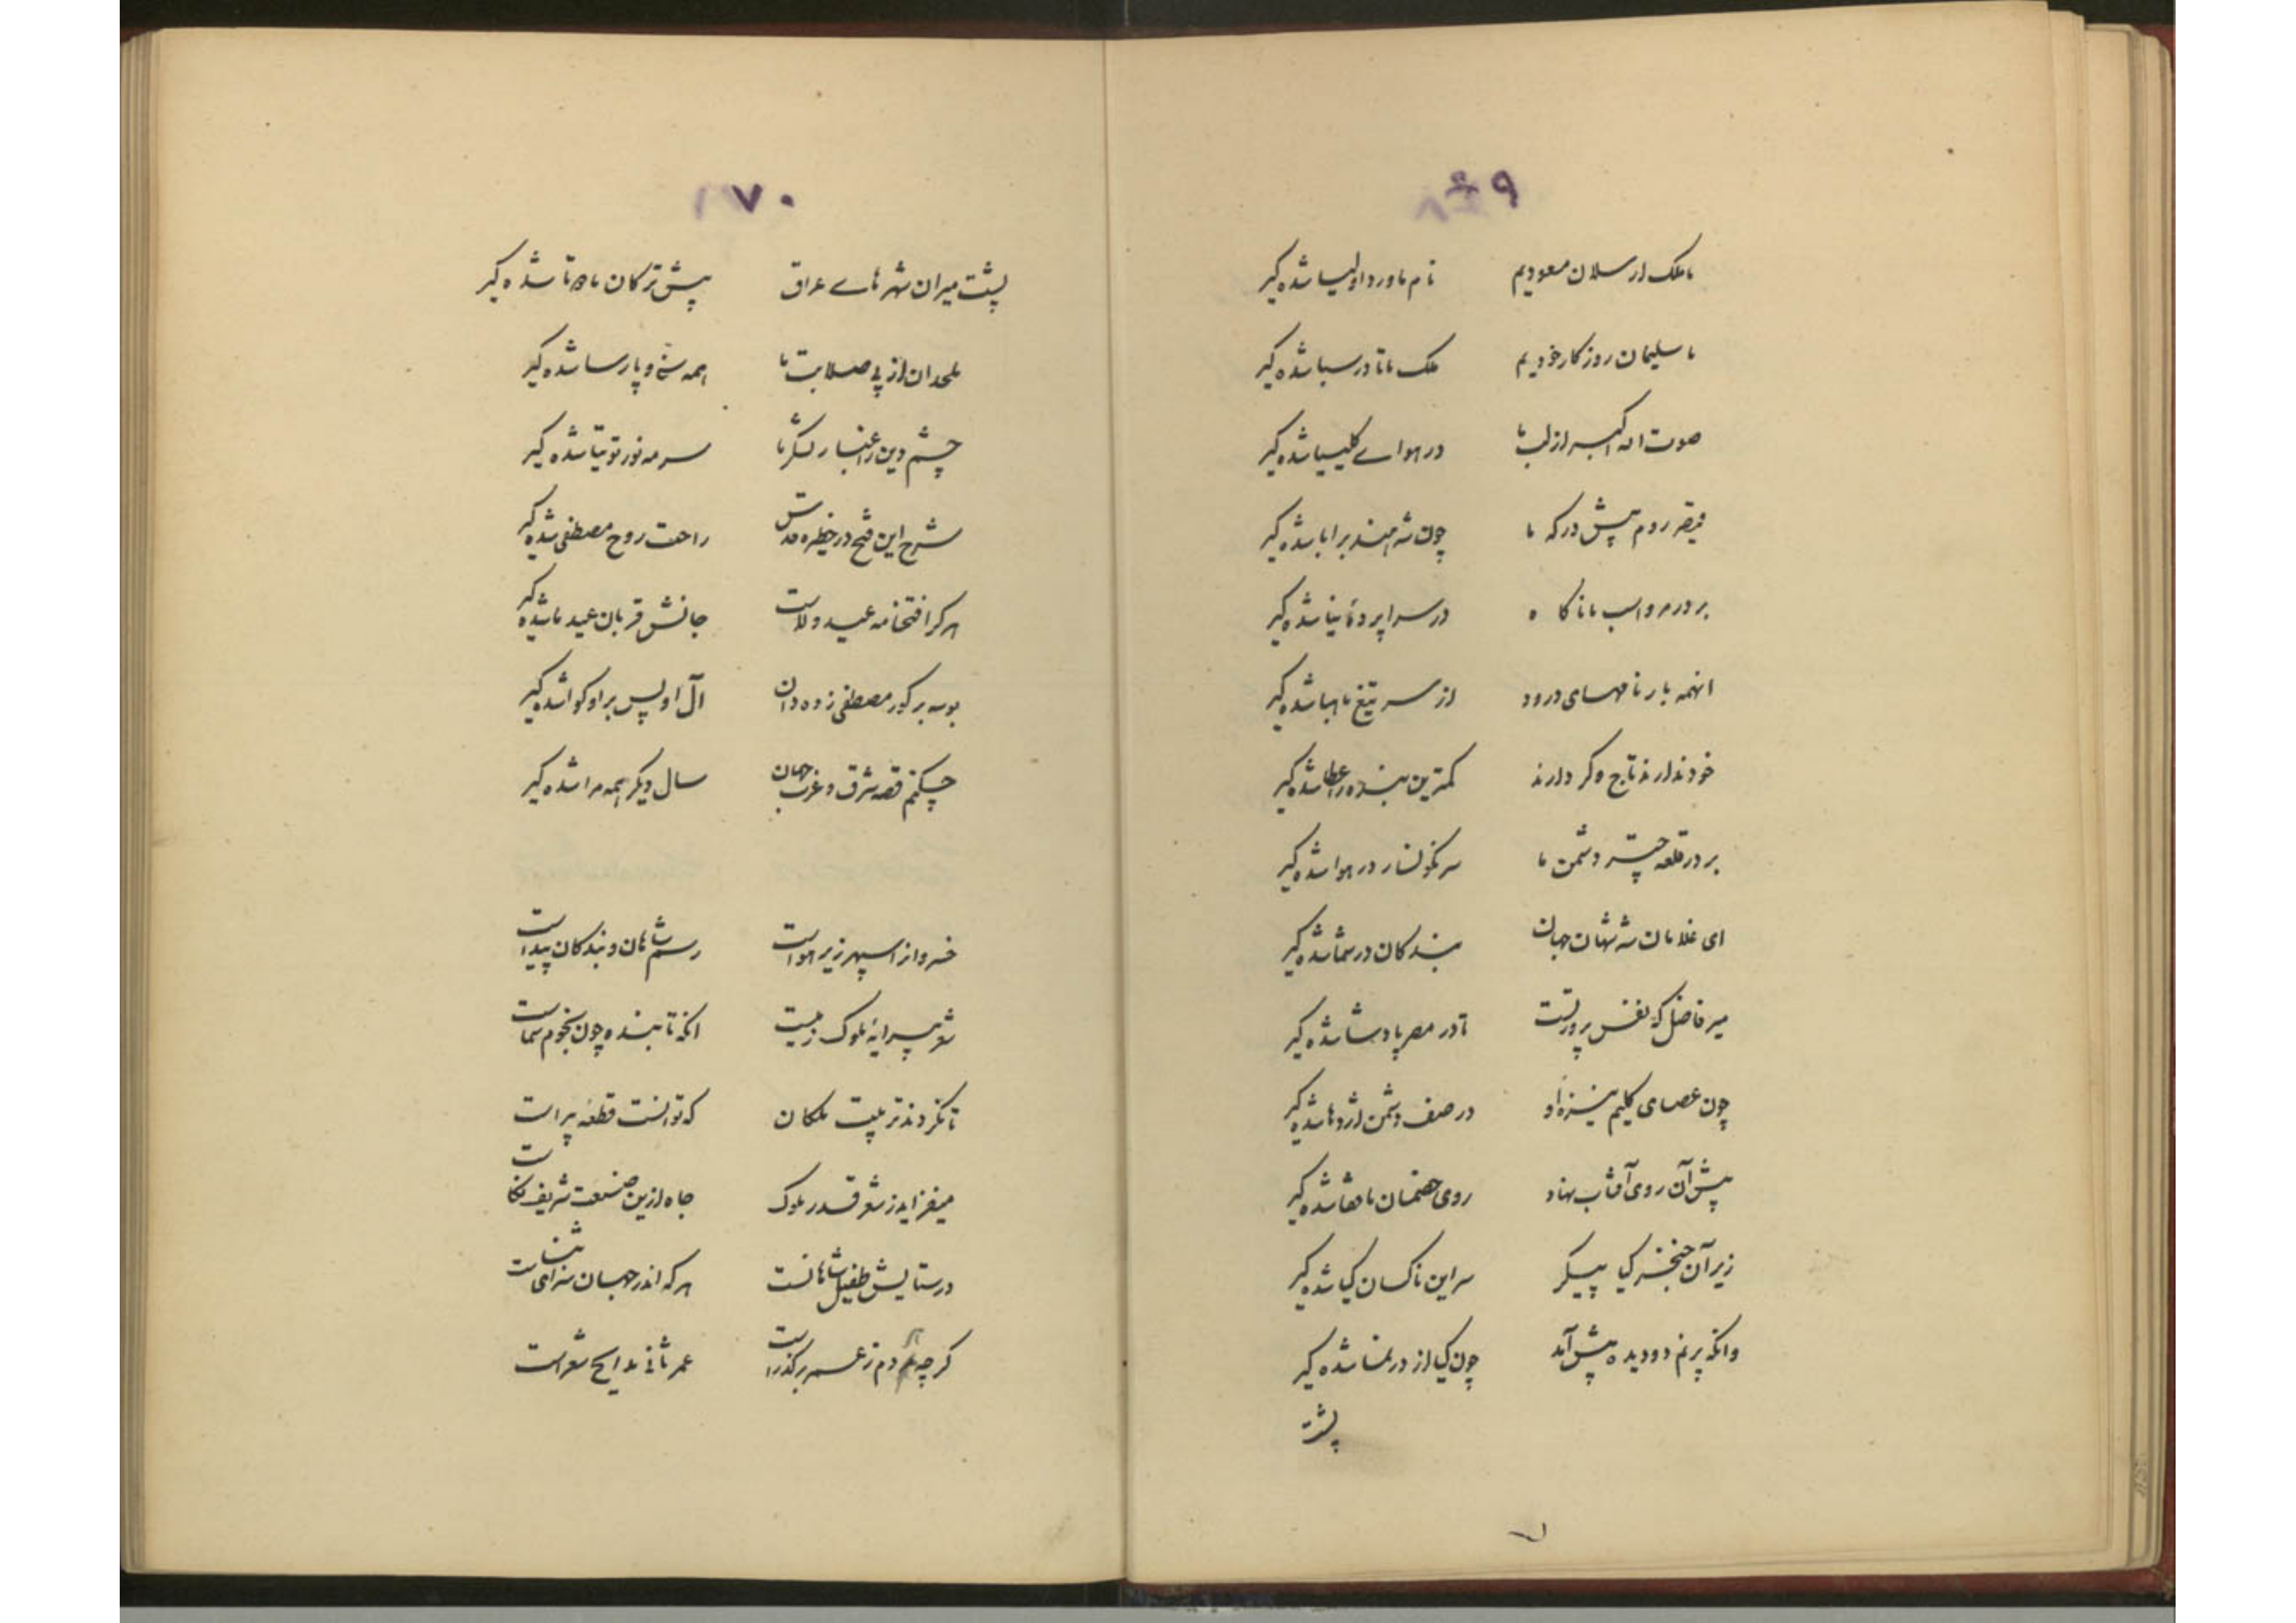 ۶۹
ما ملک ارسلان مسعودیم نام ما ورد اولیا شده گیر
ما سلیمان روزکار خودیم ملک ما تا در سبا شده گیر
صوت الله اکبر از لب ما در هوای کلیسیا شده گیر
قیصر روم پیش درکه ما چون شه هند بر ابا شده گیر
بر در مرو اسب ما ناکاه در سرا پرده نیا شده گیر
اینهمه بار نامهای درود از سر تیغ ما هبا شده گیر
خود ندارند تاج وکر دارند کمترین بنده را عطا شده گیر
بر در قلعه چتر دشمن ما سرنکونسار در هوا شده گیر
ای غلامان شه شهان جهان بندکان در شما شده گیر
میر فاضل که نفس پرور تست تا در مصر پادشا شده گیر
چون عصای کلیم نیزه او در صف دشمن اژدها شده گیر
پیش آن روی آفتاب نهاد روی خصمان ما قفا شده گیر
زیر آن خنجر کیا پیکر سر این ناکسان کیا شده گیر
وانکه پرنم دو دیده پیش آید چون کیا از در نما شده گیر
پشت
۷۰
پشت میران شهرهای عراق پیش ترکان ما دوتا شده گیر
ملحدان از پی صلابت ما همه سنی و پارسا شده گیر
چشم دین را غبار لشکر ما سرمه نور توتیا شده گیر
شرح این فتح در حظیره قدس راحت روح مصطفی شده گیر
هر کرا فتحنامه عید ولاست جانش قربان عید ما شده گیر
بوسه بر کور مصطفی زده دان آل او پس بر او کوا شده گیر
چکنم قصه شرق و غرب جهان سال دیگر همه مرا شده گیر
خسروا ز اسپهر زیر هواست رسم شاهان و بندکان پیداست
شعر پیرایهٔ ملوک زمیست انکه تابنده چون نجوم سماست
تا نکردند تربیت ملکان که توانست قطعه پیراست
میفزاید ز شعر قدر ملوک جاه ازین صنعت شریف نکاست
در ستایش طفیل شاهانست هر که اندر جهان سزای ثناست
کرچه مردم ز عمر برکذراست عمر ثانی مدایح شعراست